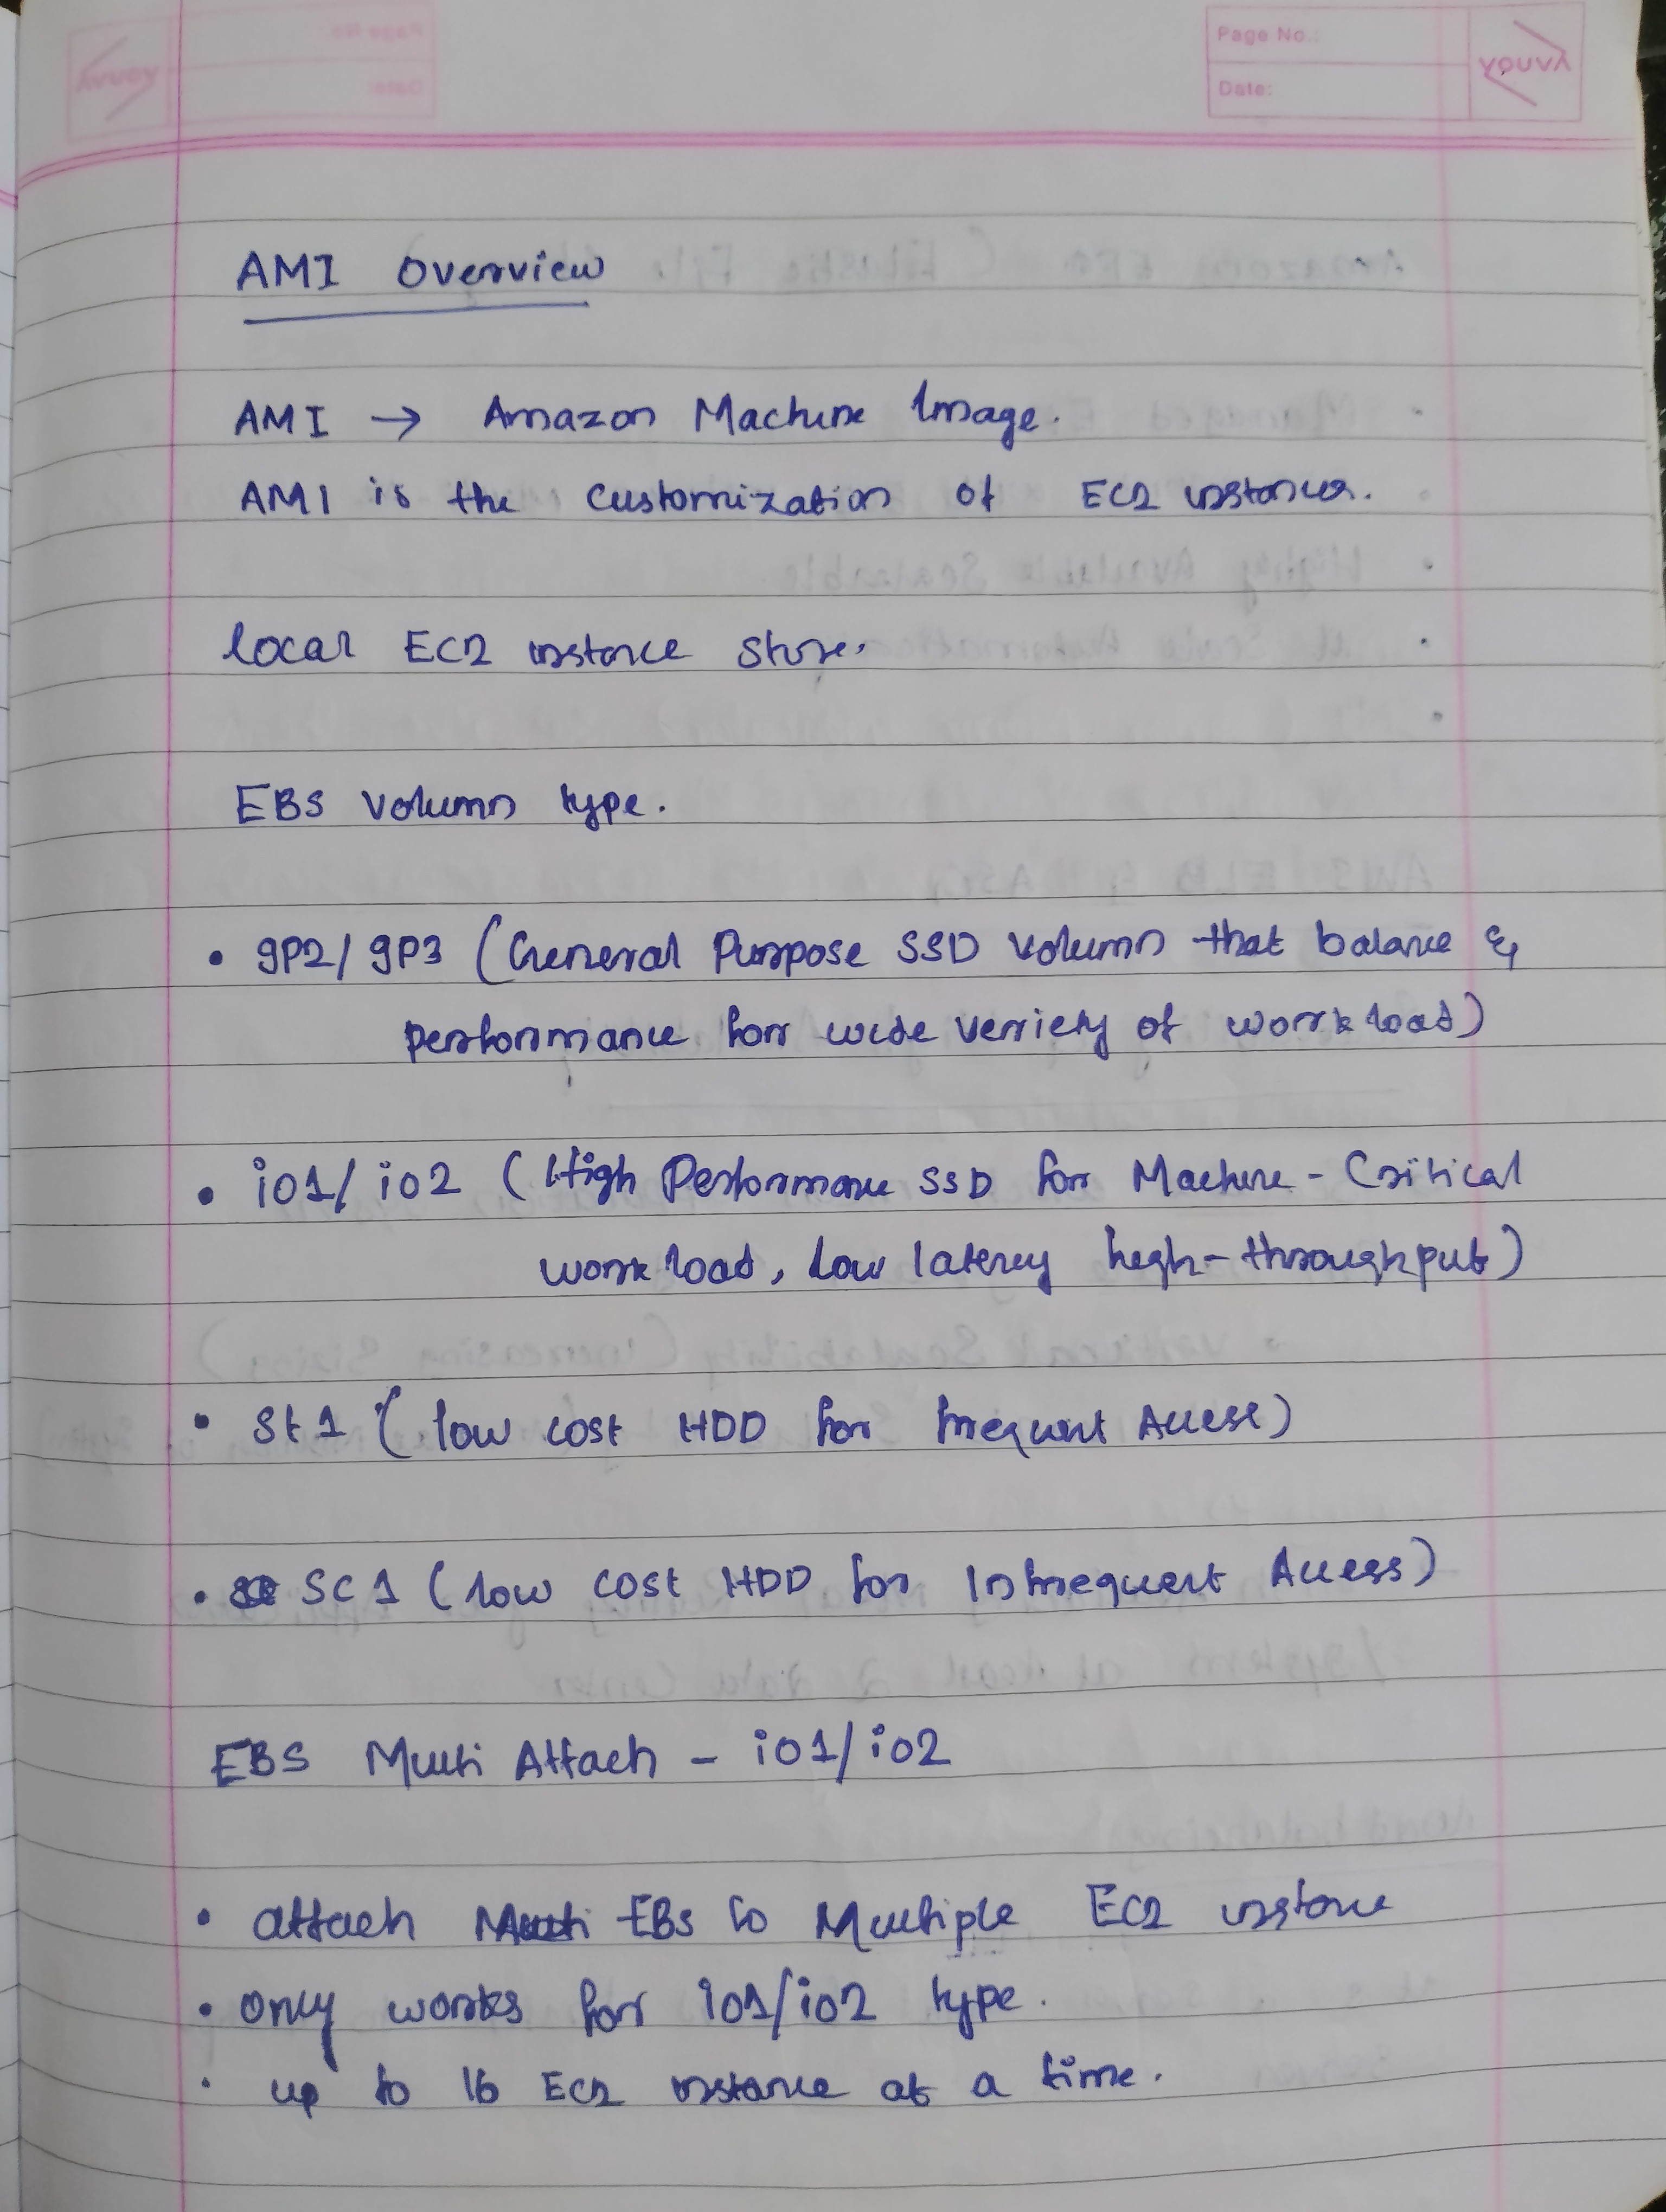 Page No.:
Date:
Youva
AMI Overview
AMI → Amazon Machine Image.
AMI is the customization of EC2 instances.
local EC2 instance store.
EBS Volumn type.
• gp2/ gp3 (General Purpose SSD Volumn that balance &
performance for wide verriety of workload)
• io1/ io2 (High Performance SSD for Machine-Critical
workload, low latency high-throughput)
• St1 (low cost HDD for frequent Access)
• SC1 (low cost HDD for Infrequent Access)
EBS Multi Attach - io1/io2
• attach Multi EBS to Multiple EC2 instance
• only works for io1/io2 type.
• up to 16 EC2 instance at a time.